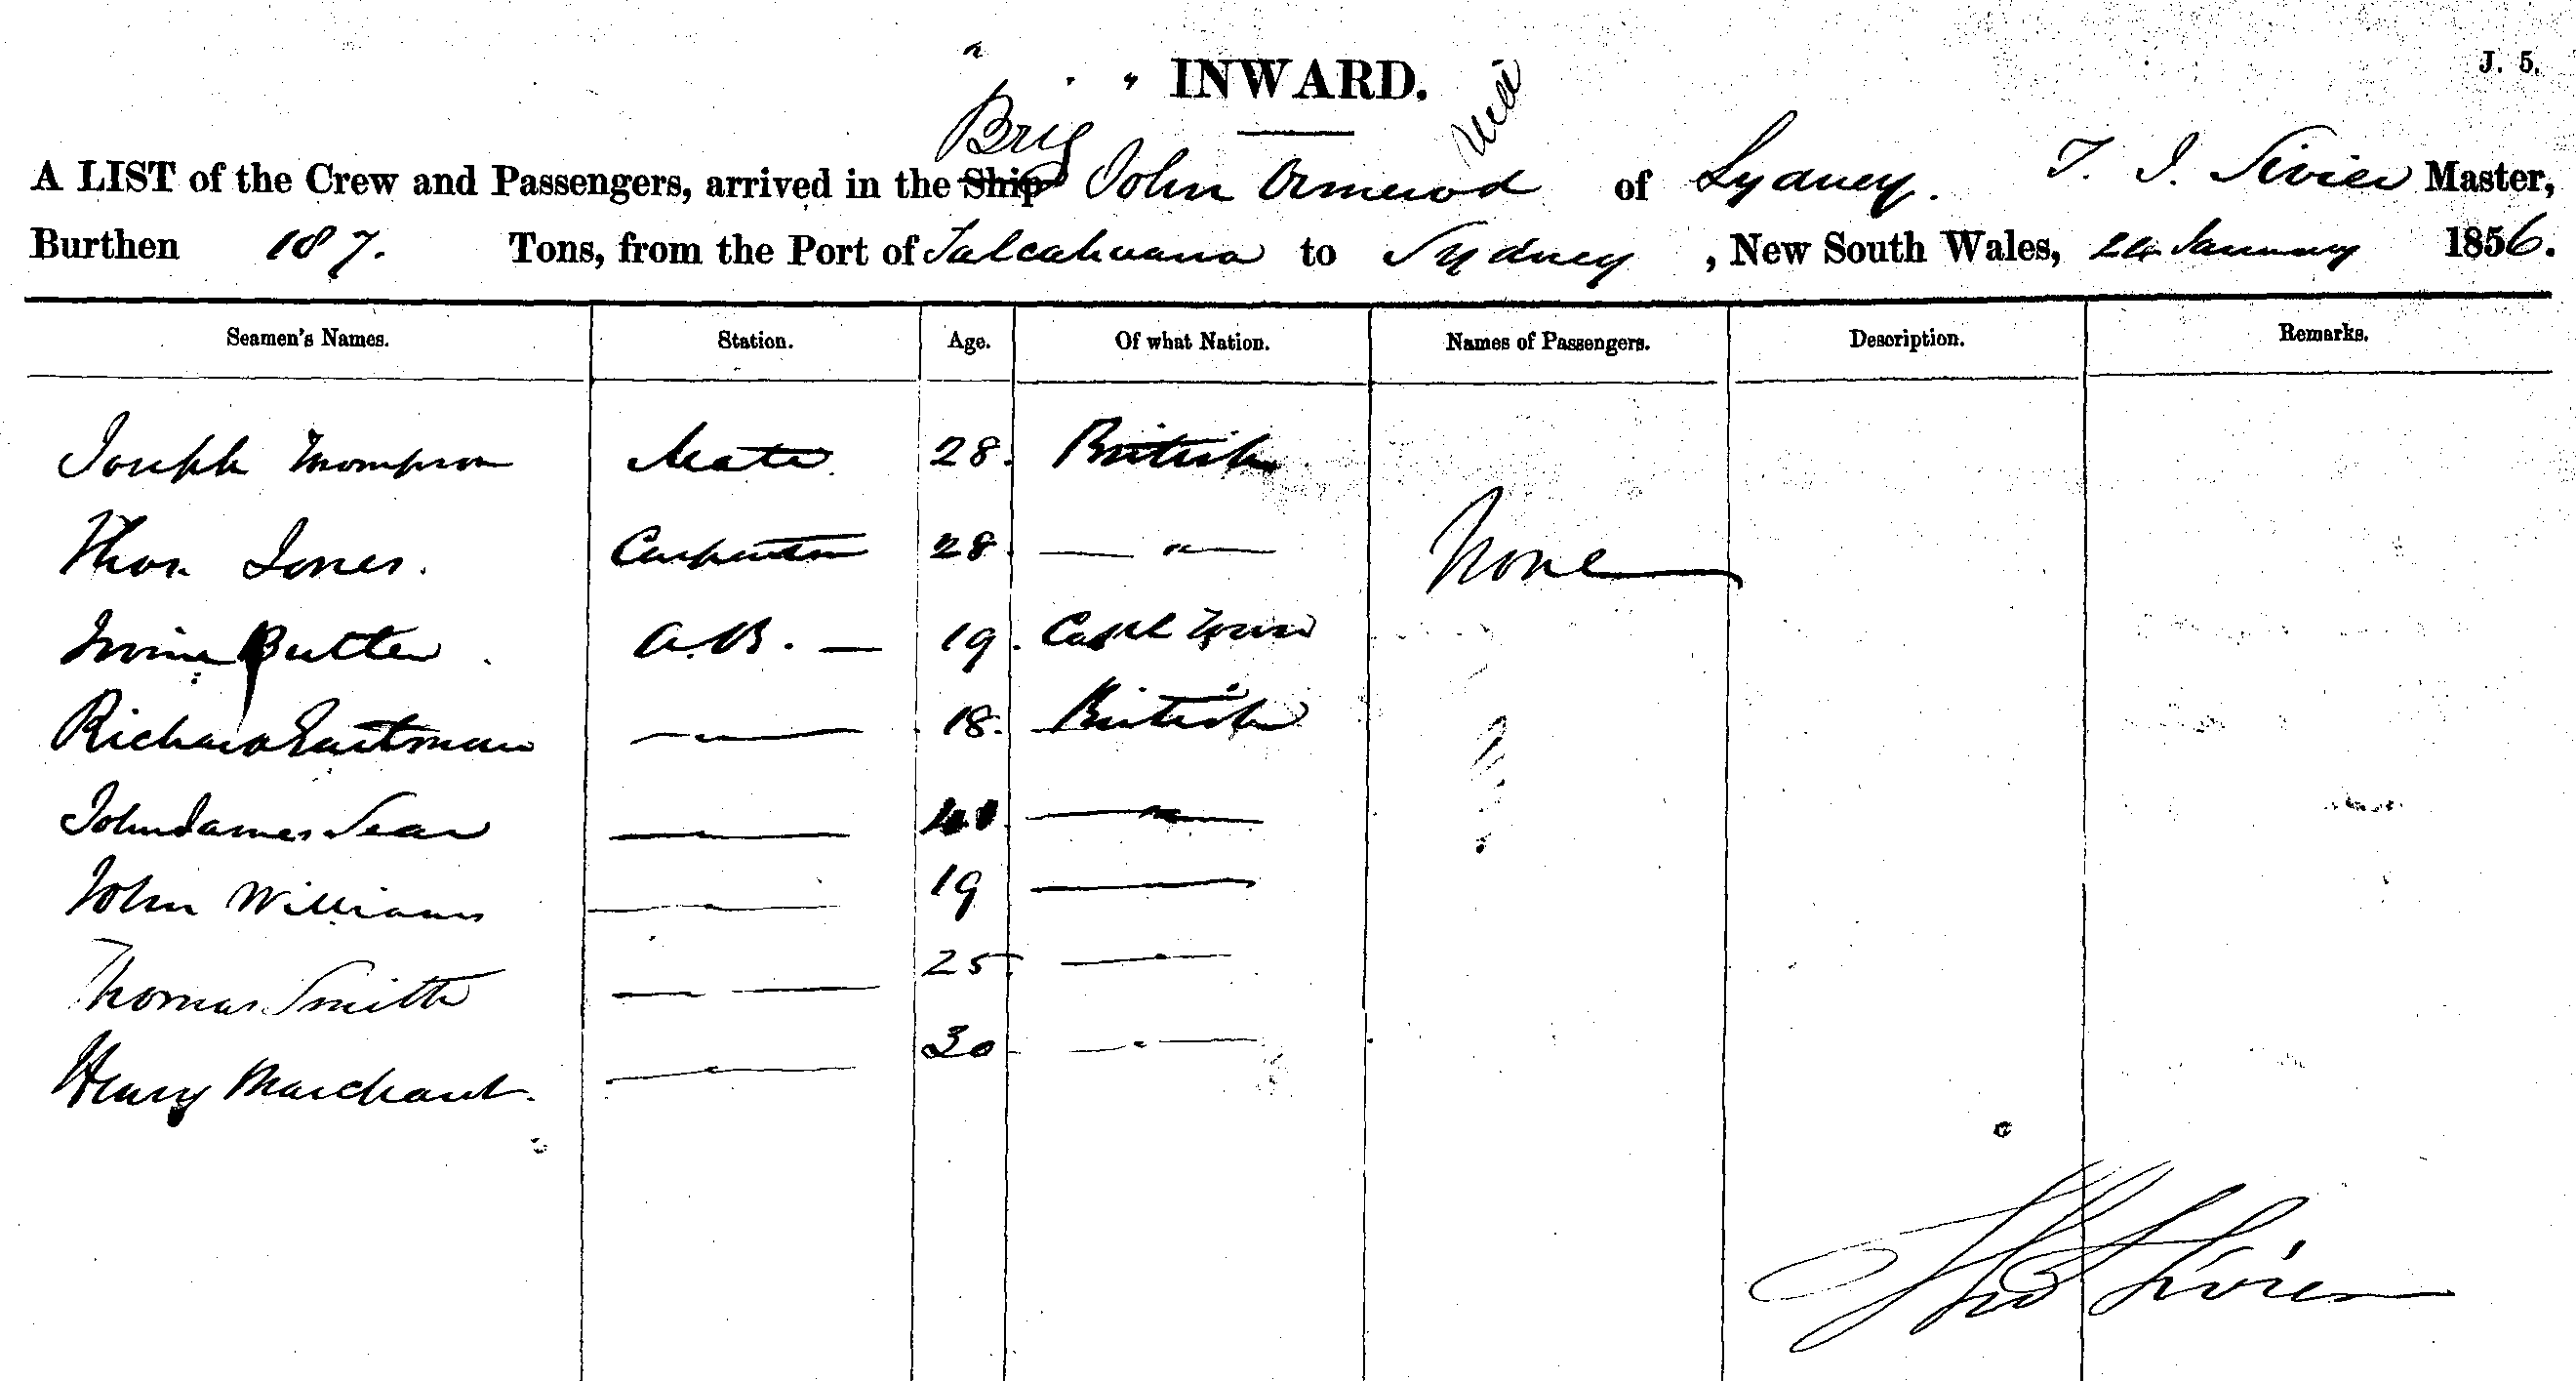 INWARD.
J. 5.
Brig
A LIST of the Crew and Passengers, arrived in the Ship John Ormerod of Sydney. T. J. Sivier Master,
Burthen 187. Tons, from the Port of Talcahuano to Sydney, New South Wales, 24 January 1856.
Seamen's Names. Station. Age. Of what Nation. Names of Passengers. Description. Remarks.
Joseph Thompson Mate 28. British
Thos. Jones. Carpenter 28 — " —
None
Butler A.B. — 19. Cape Town
Richard Eastman — 18. British
John James Sear — —
John Williams — 19 —
Thomas Smith — 25 —
Henry Marchant. — 30 —
Thos Sivier